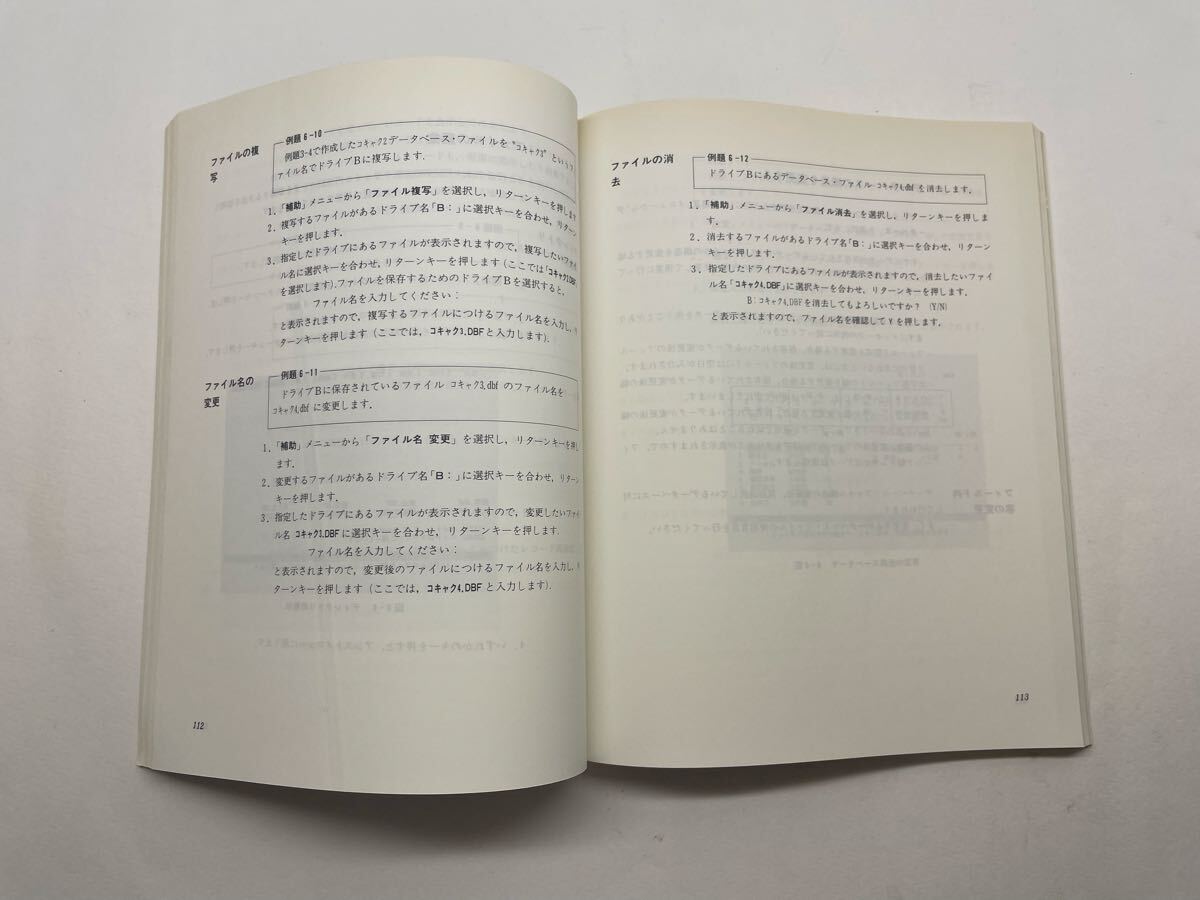 ファイルの複
写
例題6-10
例題3-4で作成したコキャク2データベース・ファイルを"コキャク3"というフ
ァイル名でドライブBに複写します.
1. 「補助」メニューから「ファイル複写」を選択し, リターンキーを押します
2. 複写するファイルがあるドライブ名「B:」に選択キーを合わせ, リターン
キーを押します.
3. 指定したドライブにあるファイルが表示されますので, 複写したいファイ
ル名に選択キーを合わせ, リターンキーを押します(ここでは「コキャク2.DBF
を選択します). ファイルを保存するためのドライブBを選択すると,
ファイル名を入力してください:
と表示されますので, 複写するファイルにつけるファイル名を入力し, リ
ターンキーを押します (ここでは, コキャク3.DBFと入力します).
ファイル名の
変更
例題6-11
ドライブBに保存されているファイル コキャク3.dbf のファイル名を
コキャク4.dbf に変更します.
1. 「補助」メニューから「ファイル名 変更」を選択し, リターンキーを押し
ます.
2. 変更するファイルがあるドライブ名「B:」に選択キーを合わせ, リターン
キーを押します.
3. 指定したドライブにあるファイルが表示されますので, 変更したいファイ
ル名 コキャク3.DBF に選択キーを合わせ, リターンキーを押します.
ファイル名を入力してください:
と表示されますので, 変更後のファイルにつけるファイル名を入力し, リ
ターンキーを押します (ここでは, コキャク4.DBF と入力します).
112
ファイルの消
去
例題6-12
ドライブBにあるデータベース・ファイル コキャク4.dbf を消去します.
1. 「補助」メニューから「ファイル消去」を選択し, リターンキーを押しま
す.
2. 消去するファイルがあるドライブ名「B:」に選択キーを合わせ, リターン
キーを押します.
3. 指定したドライブにあるファイルが表示されますので, 消去したいファイ
ル名「コキャク4.DBF」に選択キーを合わせ, リターンキーを押します.
B:コキャク4.DBFを消去してもよろしいですか? (Y/N)
と表示されますので, ファイル名を確認して Y を押します.
113